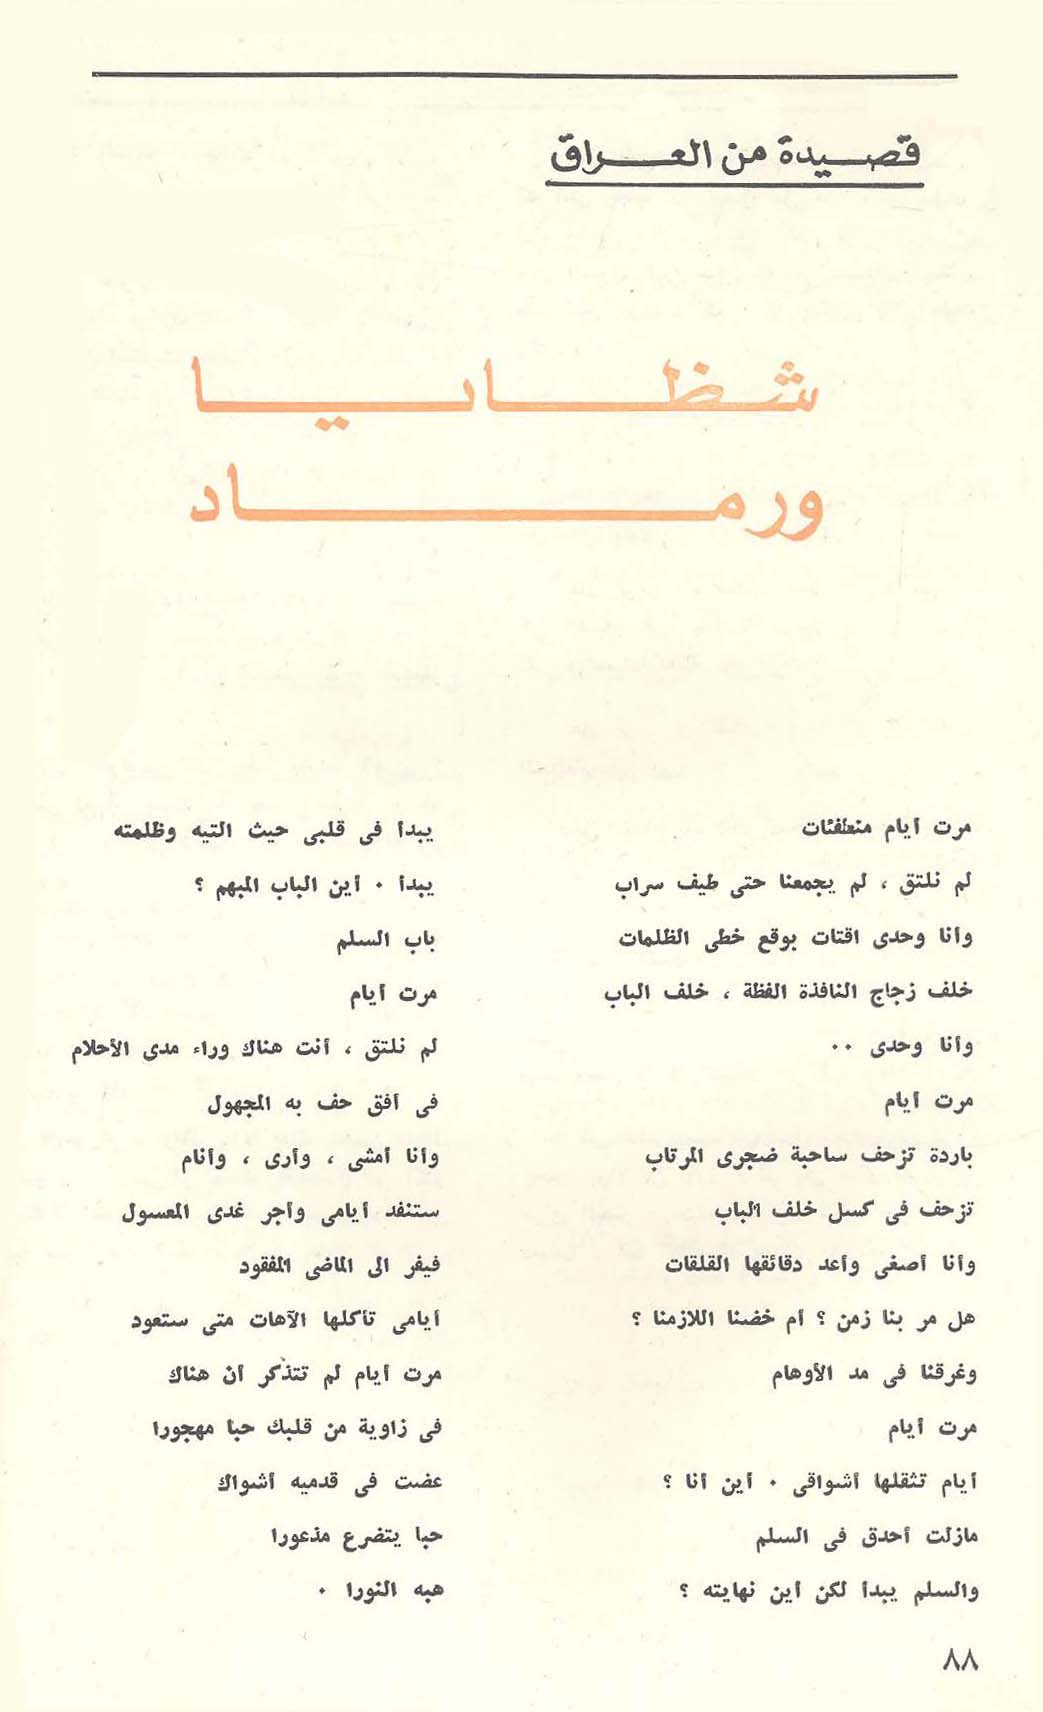 قصيدة من العراق
شظايا
ورماد
مرت أيام منطفئات
لم نلتق ، لم يجمعنا حتى طيف سراب
وأنا وحدى اقتات بوقع خطى الظلمات
خلف زجاج النافذة الفظة ، خلف الباب
وأنا وحدى ٠٠
مرت أيام
باردة تزحف ساحبة ضجرى المرتاب
تزحف فى كسل خلف الباب
وأنا أصغى وأعد دقائقها القلقات
هل مر بنا زمن ؟ أم خضنا اللازمنا ؟
وغرقنا فى مد الأوهام
مرت أيام
أيام تثقلها أشواقى ٠ أين أنا ؟
مازلت أحدق فى السلم
والسلم يبدأ لكن أين نهايته ؟
يبدأ فى قلبى حيث التيه وظلمته
يبدأ ٠ أين الباب المبهم ؟
باب السلم
مرت أيام
لم نلتق ، أنت هناك وراء مدى الأحلام
فى أفق حف به المجهول
وأنا أمشى ، وأرى ، وأنام
ستنفد أيامى وأجر غدى المعسول
فيفر الى الماضى المفقود
أيامى تأكلها الآهات متى ستعود
مرت أيام لم تتذكر أن هناك
فى زاوية من قلبك حبا مهجورا
عضت فى قدميه أشواك
حبا يتضرع مذعورا
هبه النورا ٠
٨٨